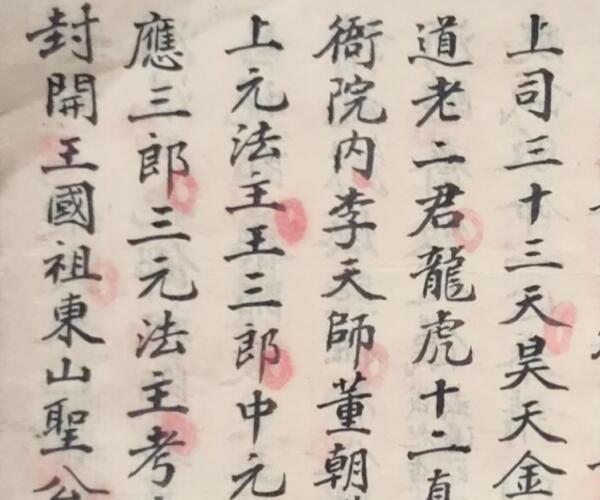 上司三十三天昊天金
道老二君龍虎十二真
衙院内李天師董朝
上元法主王三郎中元
應三郎三元法主考
封開王國祖東山聖公